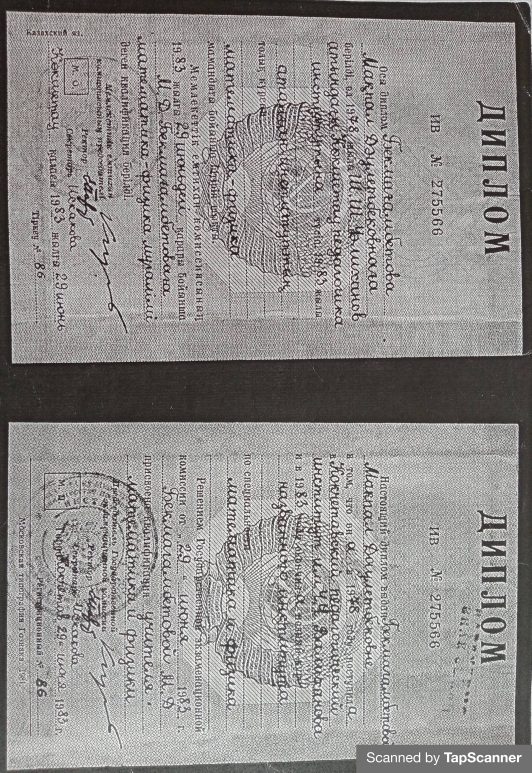 ДИПЛОМ
ИВ № 275566
Осы диплом Бекмагамбетова
Макпал Даулетбековнаға
берілді, ол 1978 жылы Ш. Ш. Уалиханов
атындағы Көкшетау педагогика
институтына түсіп, 1983 жылы
аталған институттың
толық курсын
математика-физика
мамандығы бойынша бітіріп шықты.
Мемлекеттік емтихан комиссиясының
1983 жылғы 29 июньдегі қаулысы бойынша
М. Д. Бекмагамбетоваға
математика-физика мұғалімі
деген квалификация берілді.
Мемлекеттік емтихан
комиссиясының председателі
Ректор
Секретарь Исакова
М. О.
Көкшетау қаласы 1983 жылғы 29 июнь
Тіркеу № 86
Казахский яз.
ДИПЛОМ
ИВ № 275566
Настоящий диплом выдан Бекмагамбетовой
Макпал Даулетбековне
в том, что она в 1978 году поступила
в Кокчетавский педагогический
институт им. Ч. Ч. Валиханова
и в 1983 году окончила полный курс
названного института
по специальности
математика и физика
Решением Государственной экзаменационной
комиссии от „29“ июня 1983 г.
Бекмагамбетовой М. Д.
присвоена квалификация учителя
математики и физики
Председатель Государственной
экзаменационной комиссии
Ректор
Секретарь Исакова
М. П.
Город Кокчетав 29 июня 1983 г.
Регистрационный № 86
Московская типография Гознака. 1981.
Scanned by TapScanner